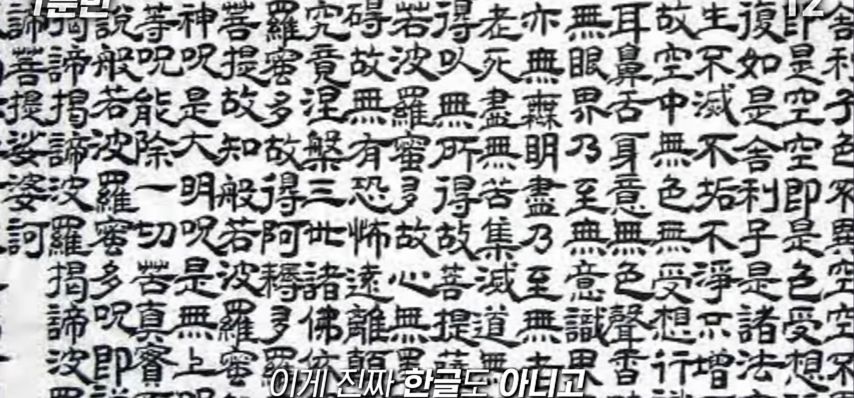 1분만
12
舍利子色不異空空不
即是空空即是色受想
復如是舍利子是諸法
生不滅不垢不淨不增
故空中無色無受想行
耳鼻舌身意無色聲香
無眼界乃至無意識界
亦無無明盡乃至無老
老死盡無苦集滅道無
得以無所得故菩提薩
若波羅蜜多故心無罣
碍故無有恐怖遠離顛
究竟涅槃三世諸佛依
羅蜜多故得阿耨多羅
菩提故知般若波羅蜜
神呪是大明呪是無上
等呪能除一切苦真實
說般若波羅蜜多呪即說
揭諦揭諦波羅揭諦波羅
諦菩提娑婆訶
이게 진짜 한글도 아니고